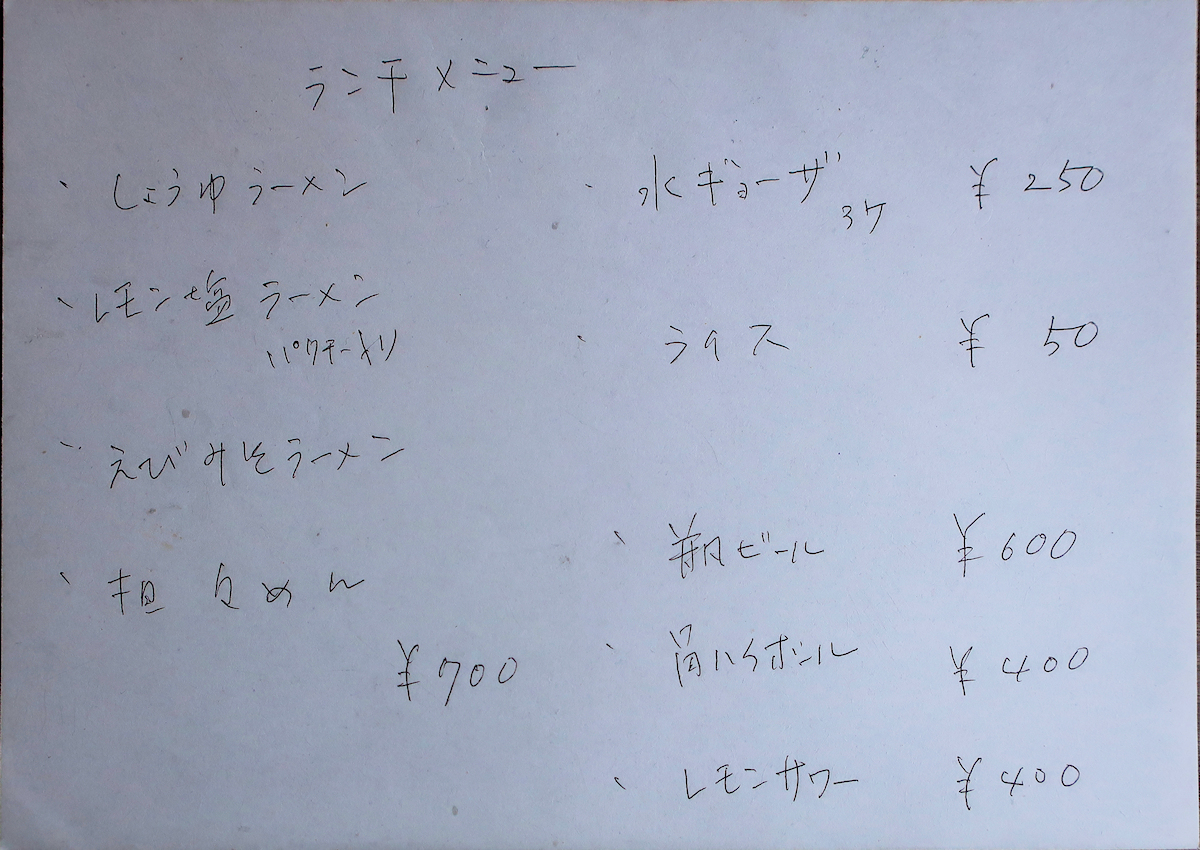 ランチメニュー
・しょうゆラーメン
・レモン塩ラーメン
パクチー入り
・えびみそラーメン
・担々めん
¥700
・水ギョーザ 3ケ ¥250
・ライス ¥50
・瓶ビール ¥600
・角ハイボール ¥400
・レモンサワー ¥400